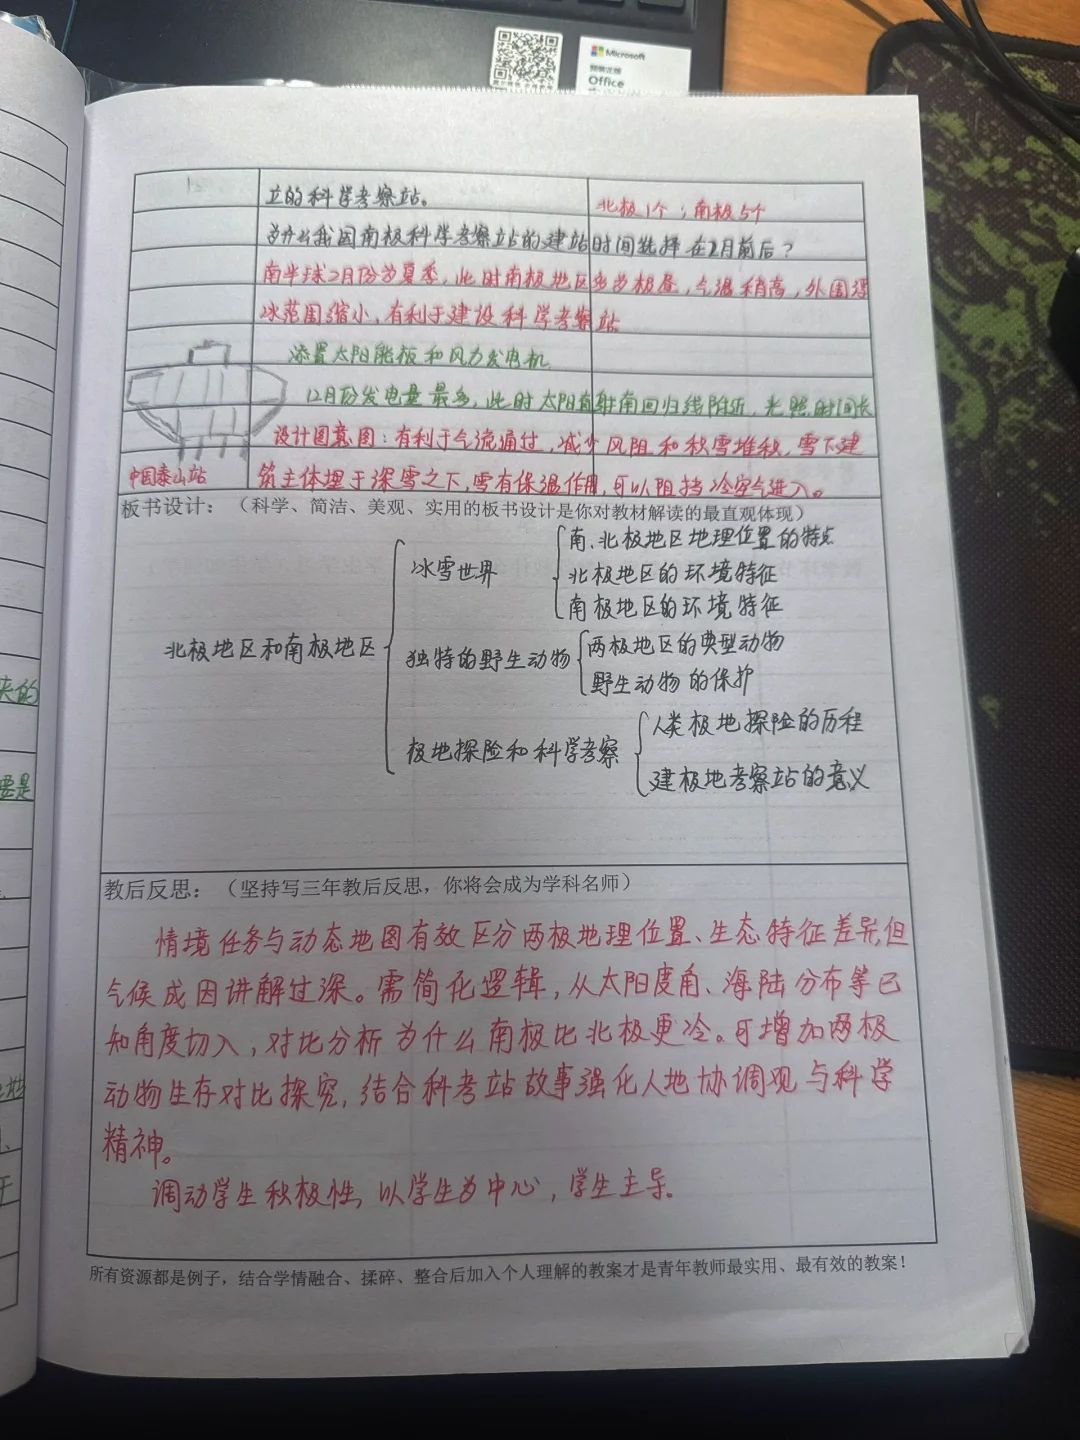 Microsoft
Office
立的科学考察站。
北极1个；南极5个
为什么我国南极科学考察站的建站时间选择在2月前后？
南半球2月份为夏季，此时南极地区多为极昼，气温稍高，外围浮
冰范围缩小，有利于建设科学考察站
添置太阳能板和风力发电机
12月份发电量最多，此时太阳直射南回归线附近，光照时间长
设计图意图：有利于气流通过，减少风阻和积雪堆积，雪下建
中国泰山站
筑主体埋于深雪之下，雪有保温作用，可以阻挡冷空气进入。
板书设计：（科学、简洁、美观、实用的板书设计是你对教材解读的最直观体现）
北极地区和南极地区
冰雪世界
南、北极地区地理位置的特点
北极地区的环境特征
南极地区的环境特征
独特的野生动物
两极地区的典型动物
野生动物的保护
极地探险和科学考察
人类极地探险的历程
建极地考察站的意义
教后反思：（坚持写三年教后反思，你将会成为学科名师）
情境任务与动态地图有效区分两极地理位置、生态特征差异，但
气候成因讲解过深。需简化逻辑，从太阳度角、海陆分布等已
知角度切入，对比分析为什么南极比北极更冷。可增加两极
动物生存对比探究，结合科考站故事强化人地协调观与科学
精神。
调动学生积极性，以学生为中心，学生主导。
所有资源都是例子，结合学情融合、揉碎、整合后加入个人理解的教案才是青年教师最实用、最有效的教案！
来的
要是